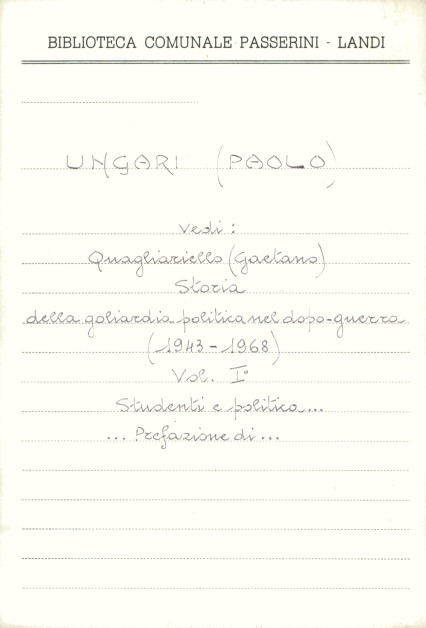 BIBLIOTECA COMUNALE PASSERINI - LANDI
UNGARI (PAOLO)
Vedi:
Quagliariello (Gaetano)
Storia
della goliardia politica nel dopo-guerra
(1943-1968)
Vol. I°
Studenti e politica...
... Prefazione di...